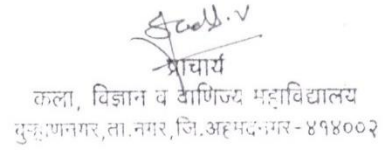 प्राचार्य
कला, विज्ञान व वाणिज्य महाविद्यालय
ता.नगर,जि.अहमदनगर-४१४००२